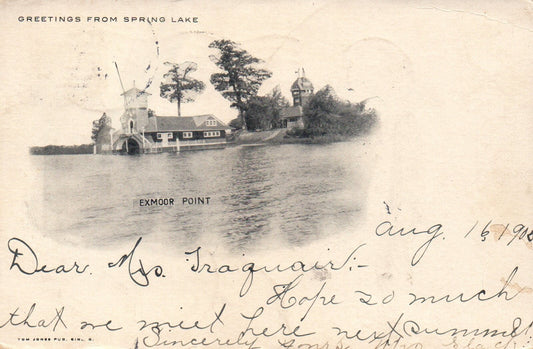 GREETINGS FROM SPRING LAKE
EXMOOR POINT
Aug. 16 190
Dear Mrs. Traquair:-
Hope so much
that we meet here next summer
Sincerely yours
TOM JONES PUB.